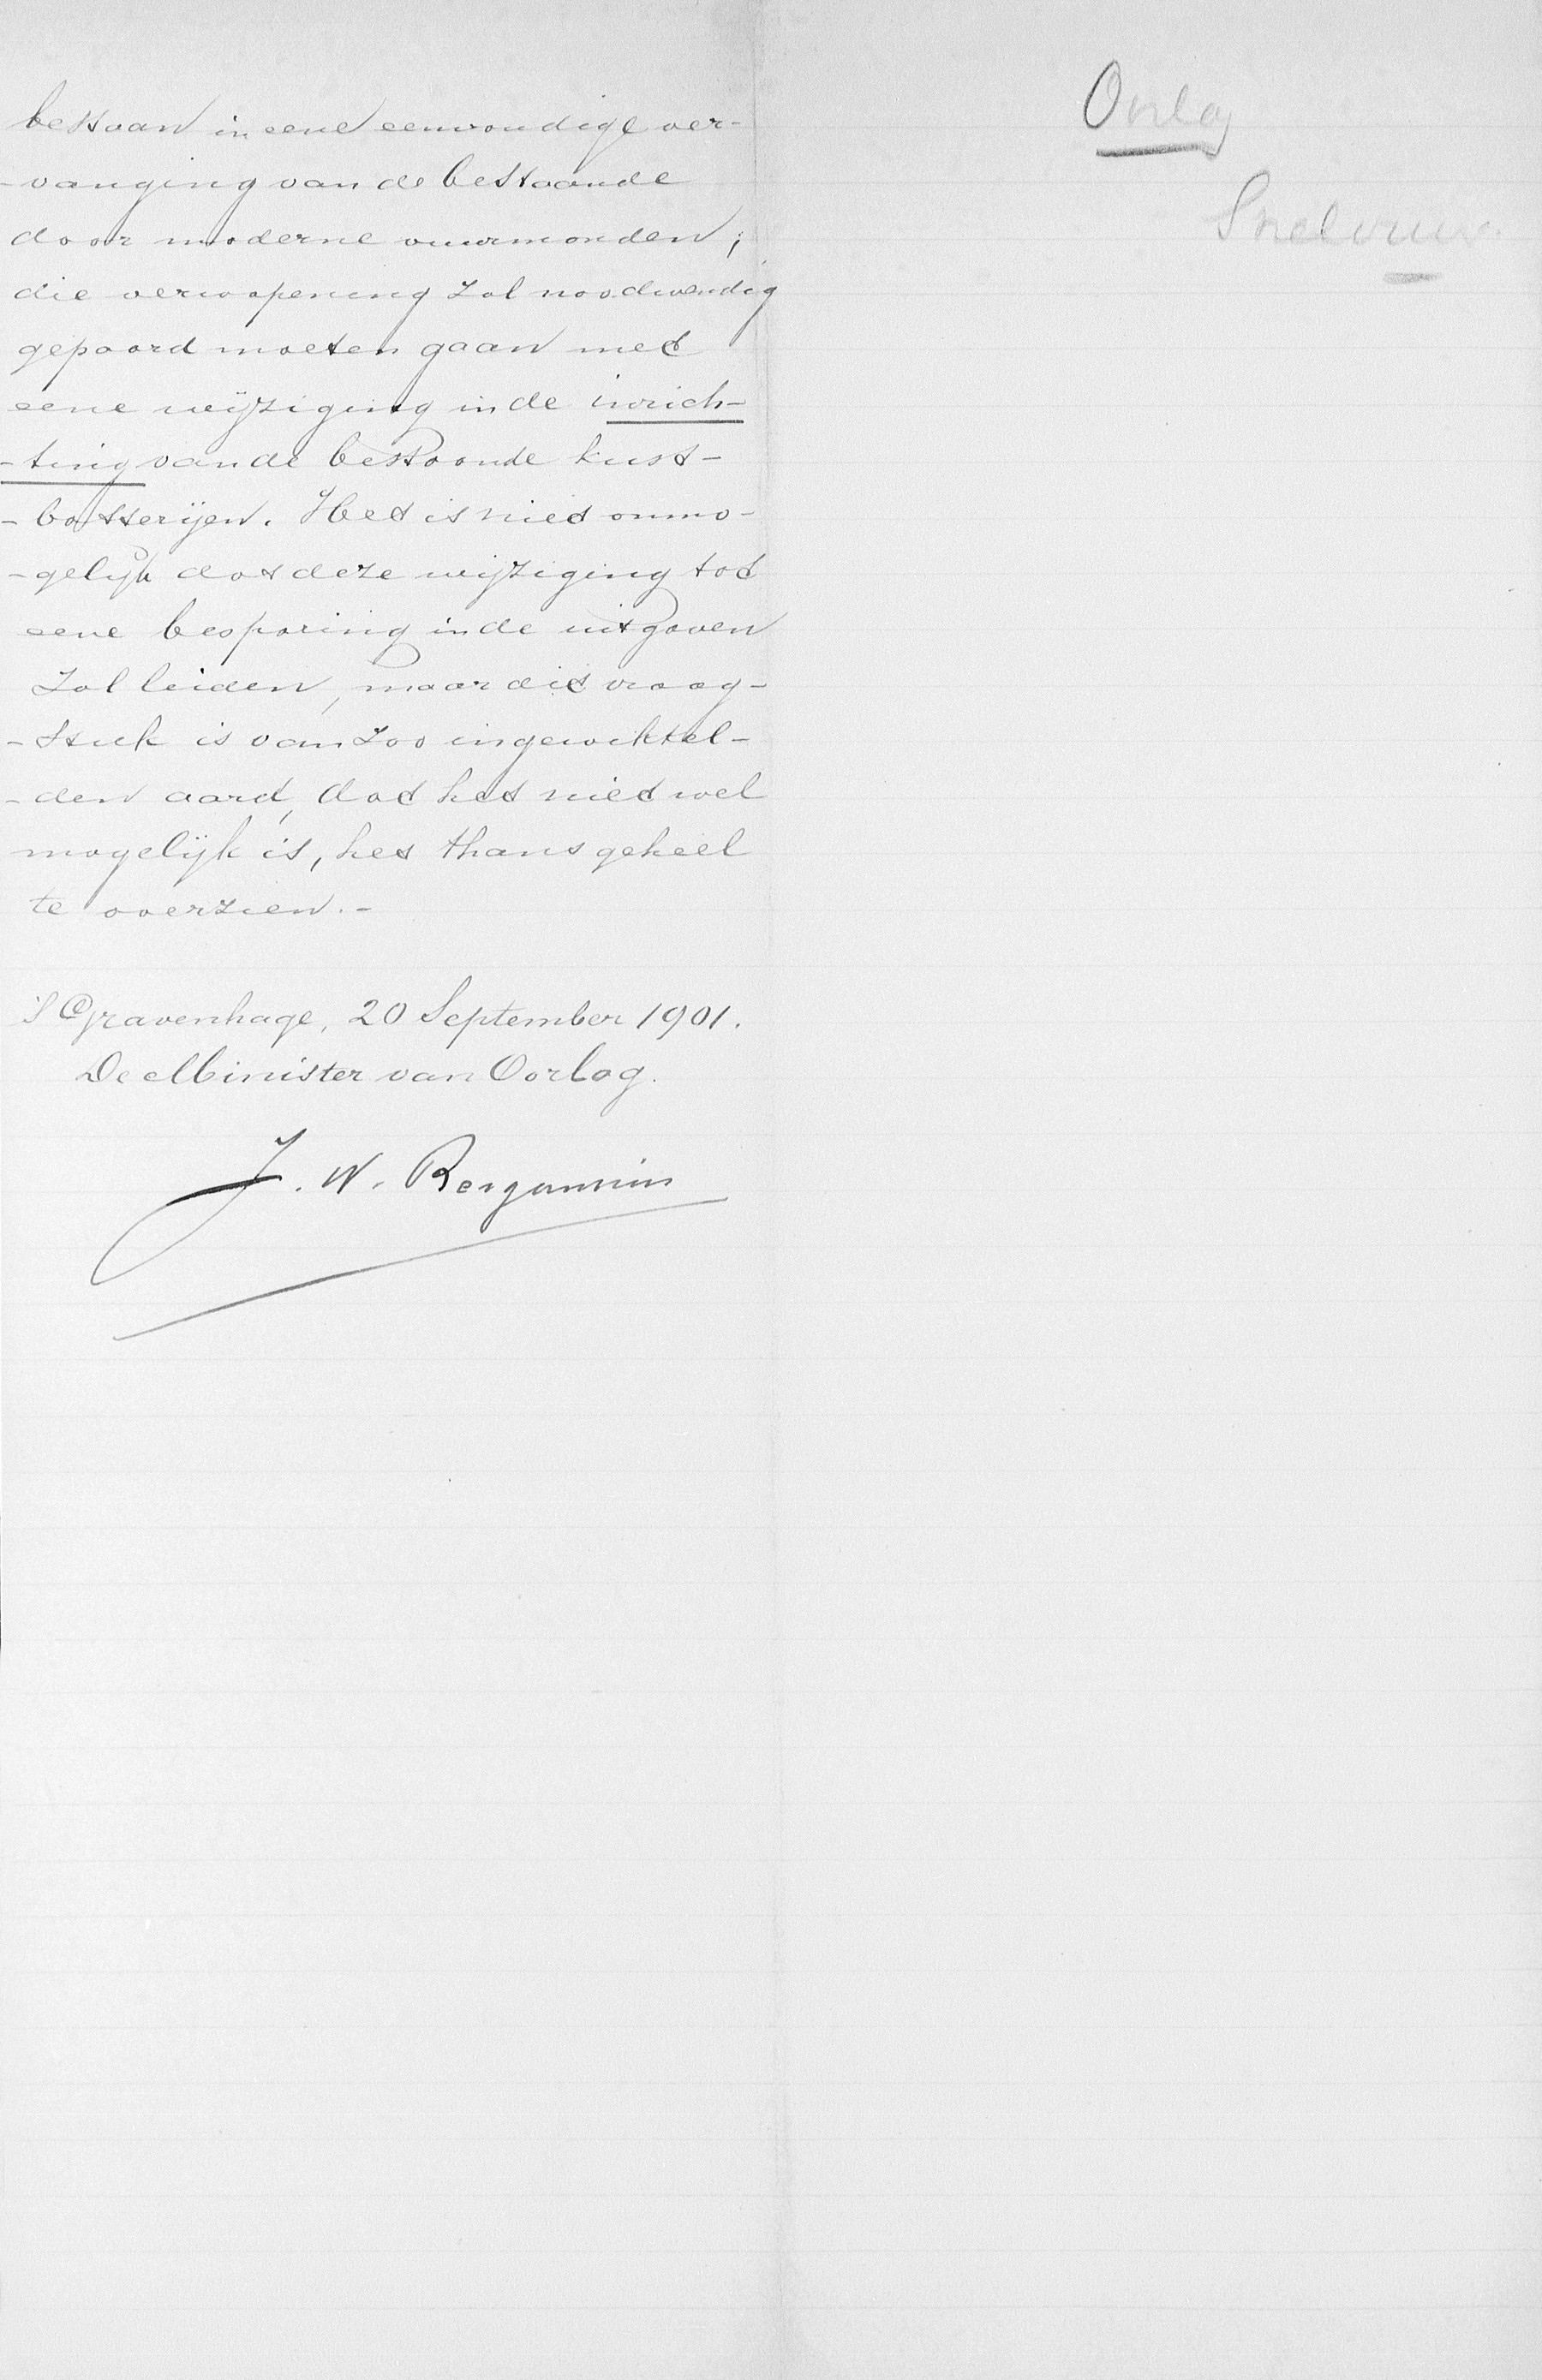 bestaan in eene eenvoudige ver-
-vanging van de bestaande
door moderne vuurmonden;
die verwapening zal noodwendig
gepaard moeten gaan met
eene wijziging in de inrich-
-ting van de bestaande kust-
-batterijen. Het is niet onmo-
-gelijk dat deze wijziging tot
eene besparing in de uitgaven
zal leiden, maar dit vraag-
-stuk is van zoo ingewikkel-
-den aard, dat het niet wel
mogelijk is, het thans geheel
te overzien.-
'S Gravenhage, 20 September 1901.
De Minister van Oorlog.
J. W. Bergansius
Oorlog
Snelvuur